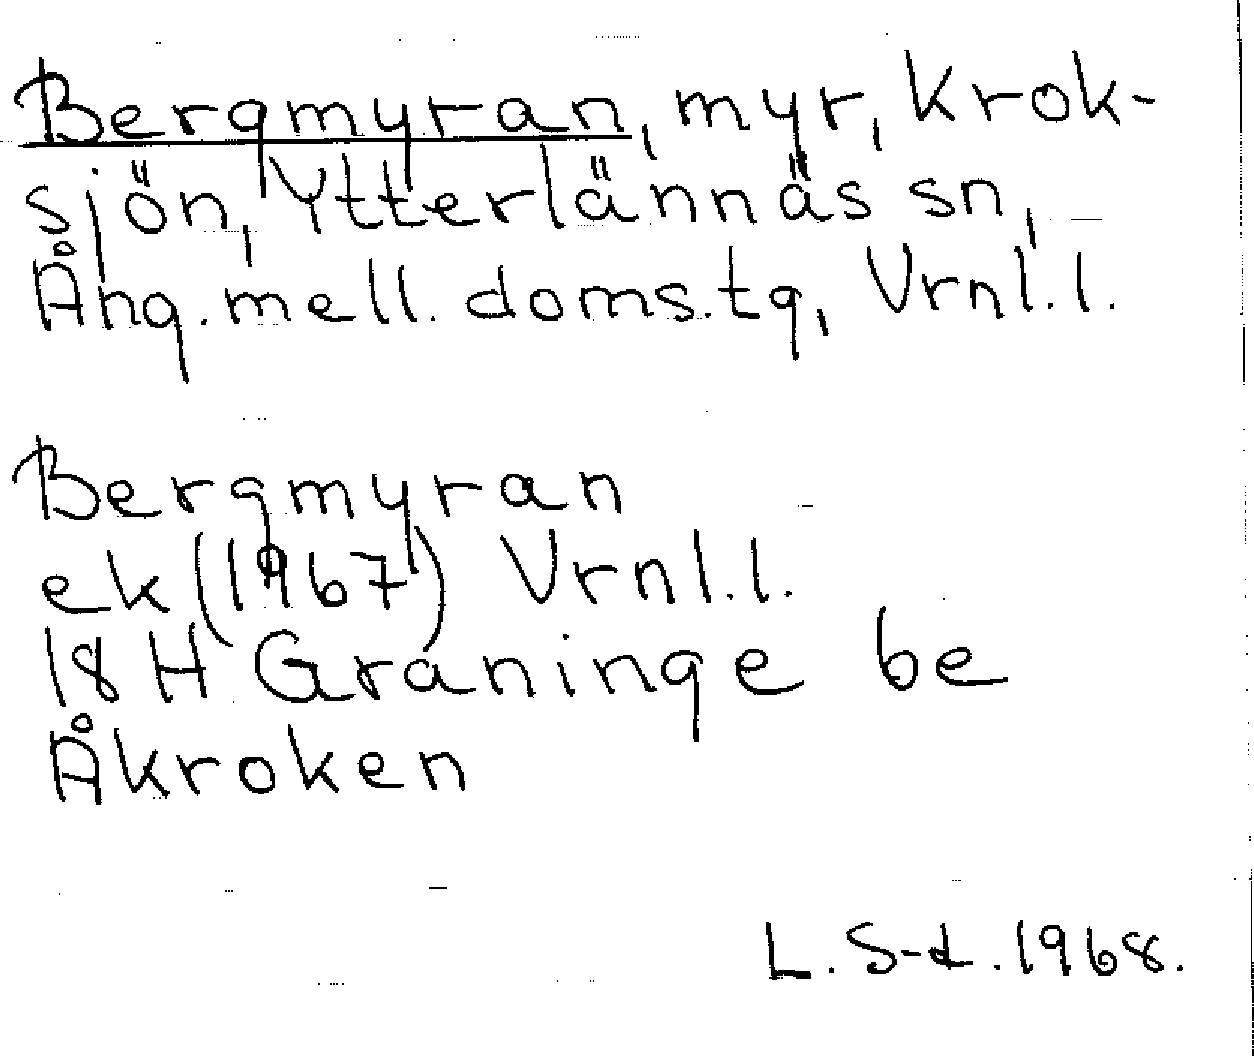 Bergmyran, myr, Krok-
sjön, Ytterlännäs sn,
Ång. mell. doms.tg, Vrnl.l.
Bergmyran
ek (1967) Vrnl.l.
18 H Graninge be
Åkroken
L. S-d. 1968.